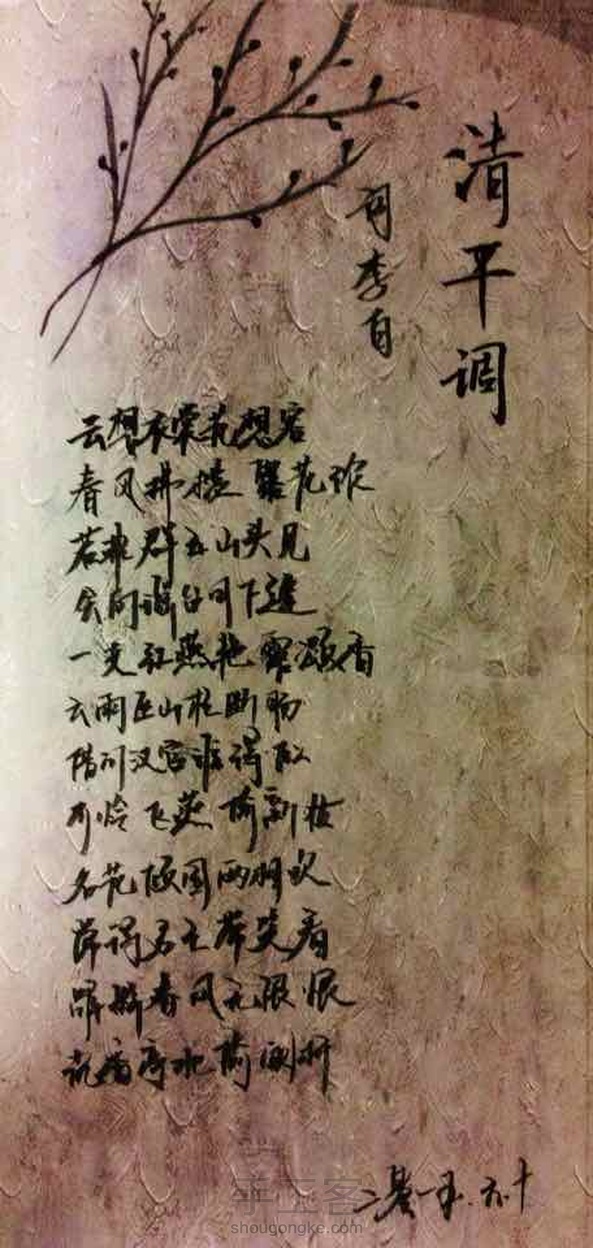 清平调
词李白
云想衣裳花想容
春风拂槛露花浓
若非群玉山头见
会向瑶台月下逢
一支红燕艳露凝香
云雨巫山枉断肠
借问汉宫谁得似
可怜飞燕倚新妆
名花倾国两相欢
常得君王带笑看
解释春风无限恨
沉香亭北倚阑杆
手工客
shougongke.com